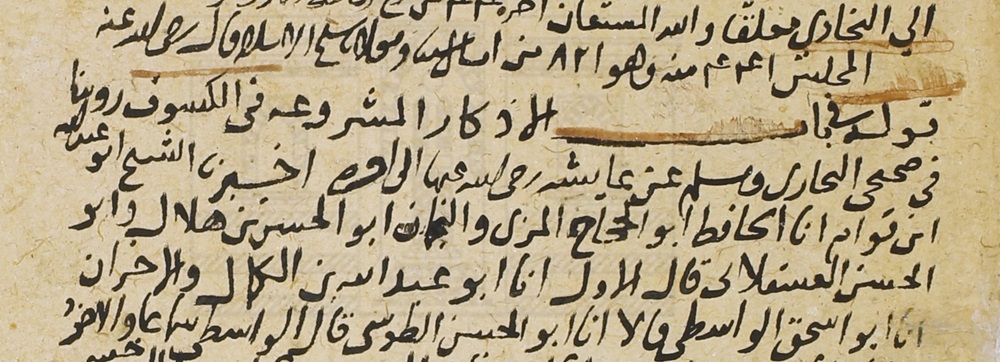 الى البخاري معلقا والله المستعان اخره
المجلس منه وهو ٨٢١ من امالي سيدنا ومولانا شيخ الاسلام قال رضي الله عنه
قوله باب الاذكار المشروعه في الكسوف روينا
في صحيحي البخاري ومسلم عن عايشه رضي الله عنها الى اخره اخبرني الشيخ ابو عبد الله
ابن قوام انا الحافظ ابو الحجاج المزي والنجمان ابو الحسن بن هلال وابو
الحسن العسقلاني قال الاول انا ابو عبد الله بن الكمال والاخران
انا ابو اسحق الواسطي قالا انا ابو الحسن الطوسي قال الواسطي سماعا والاخر